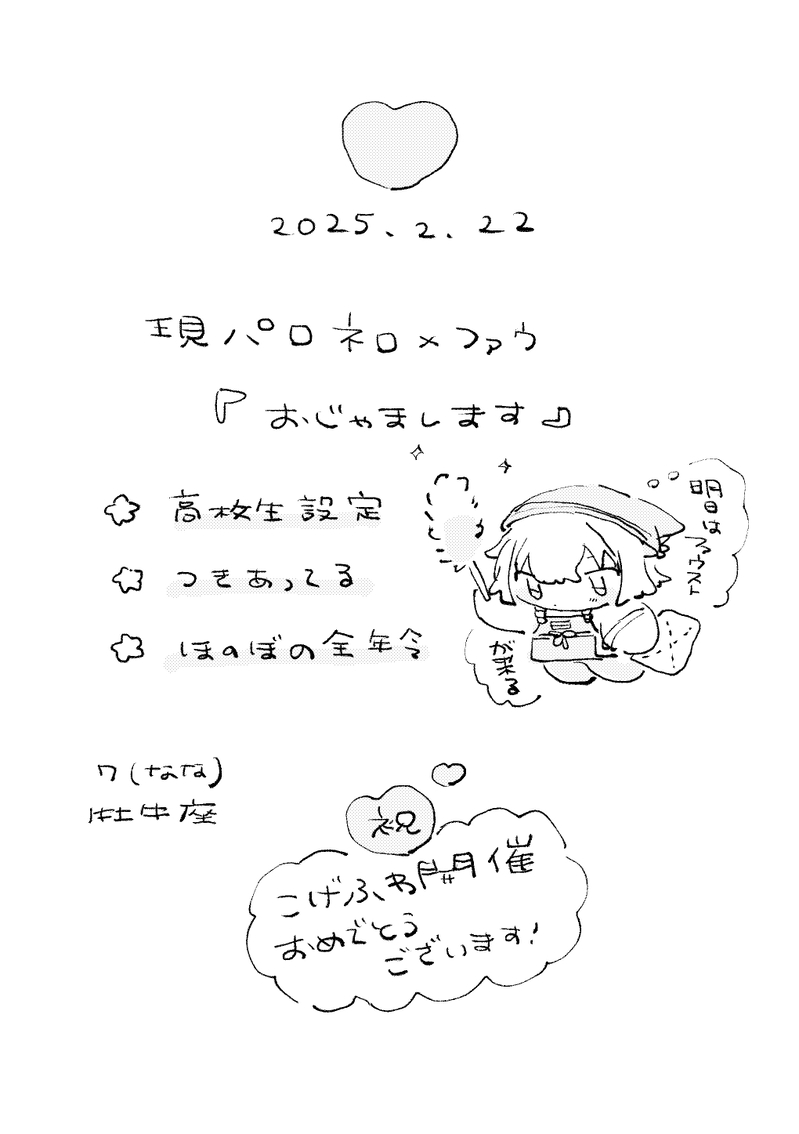 2025.2.22
現パロ ネロ×ファウ
『おじゃまします』
高校生設定
つきあってる
ほのぼの全年令
明日は
ファウスト
が来る
7(なな)
牡牛座
祝
こげふわ開催
おめでとう
ございます!